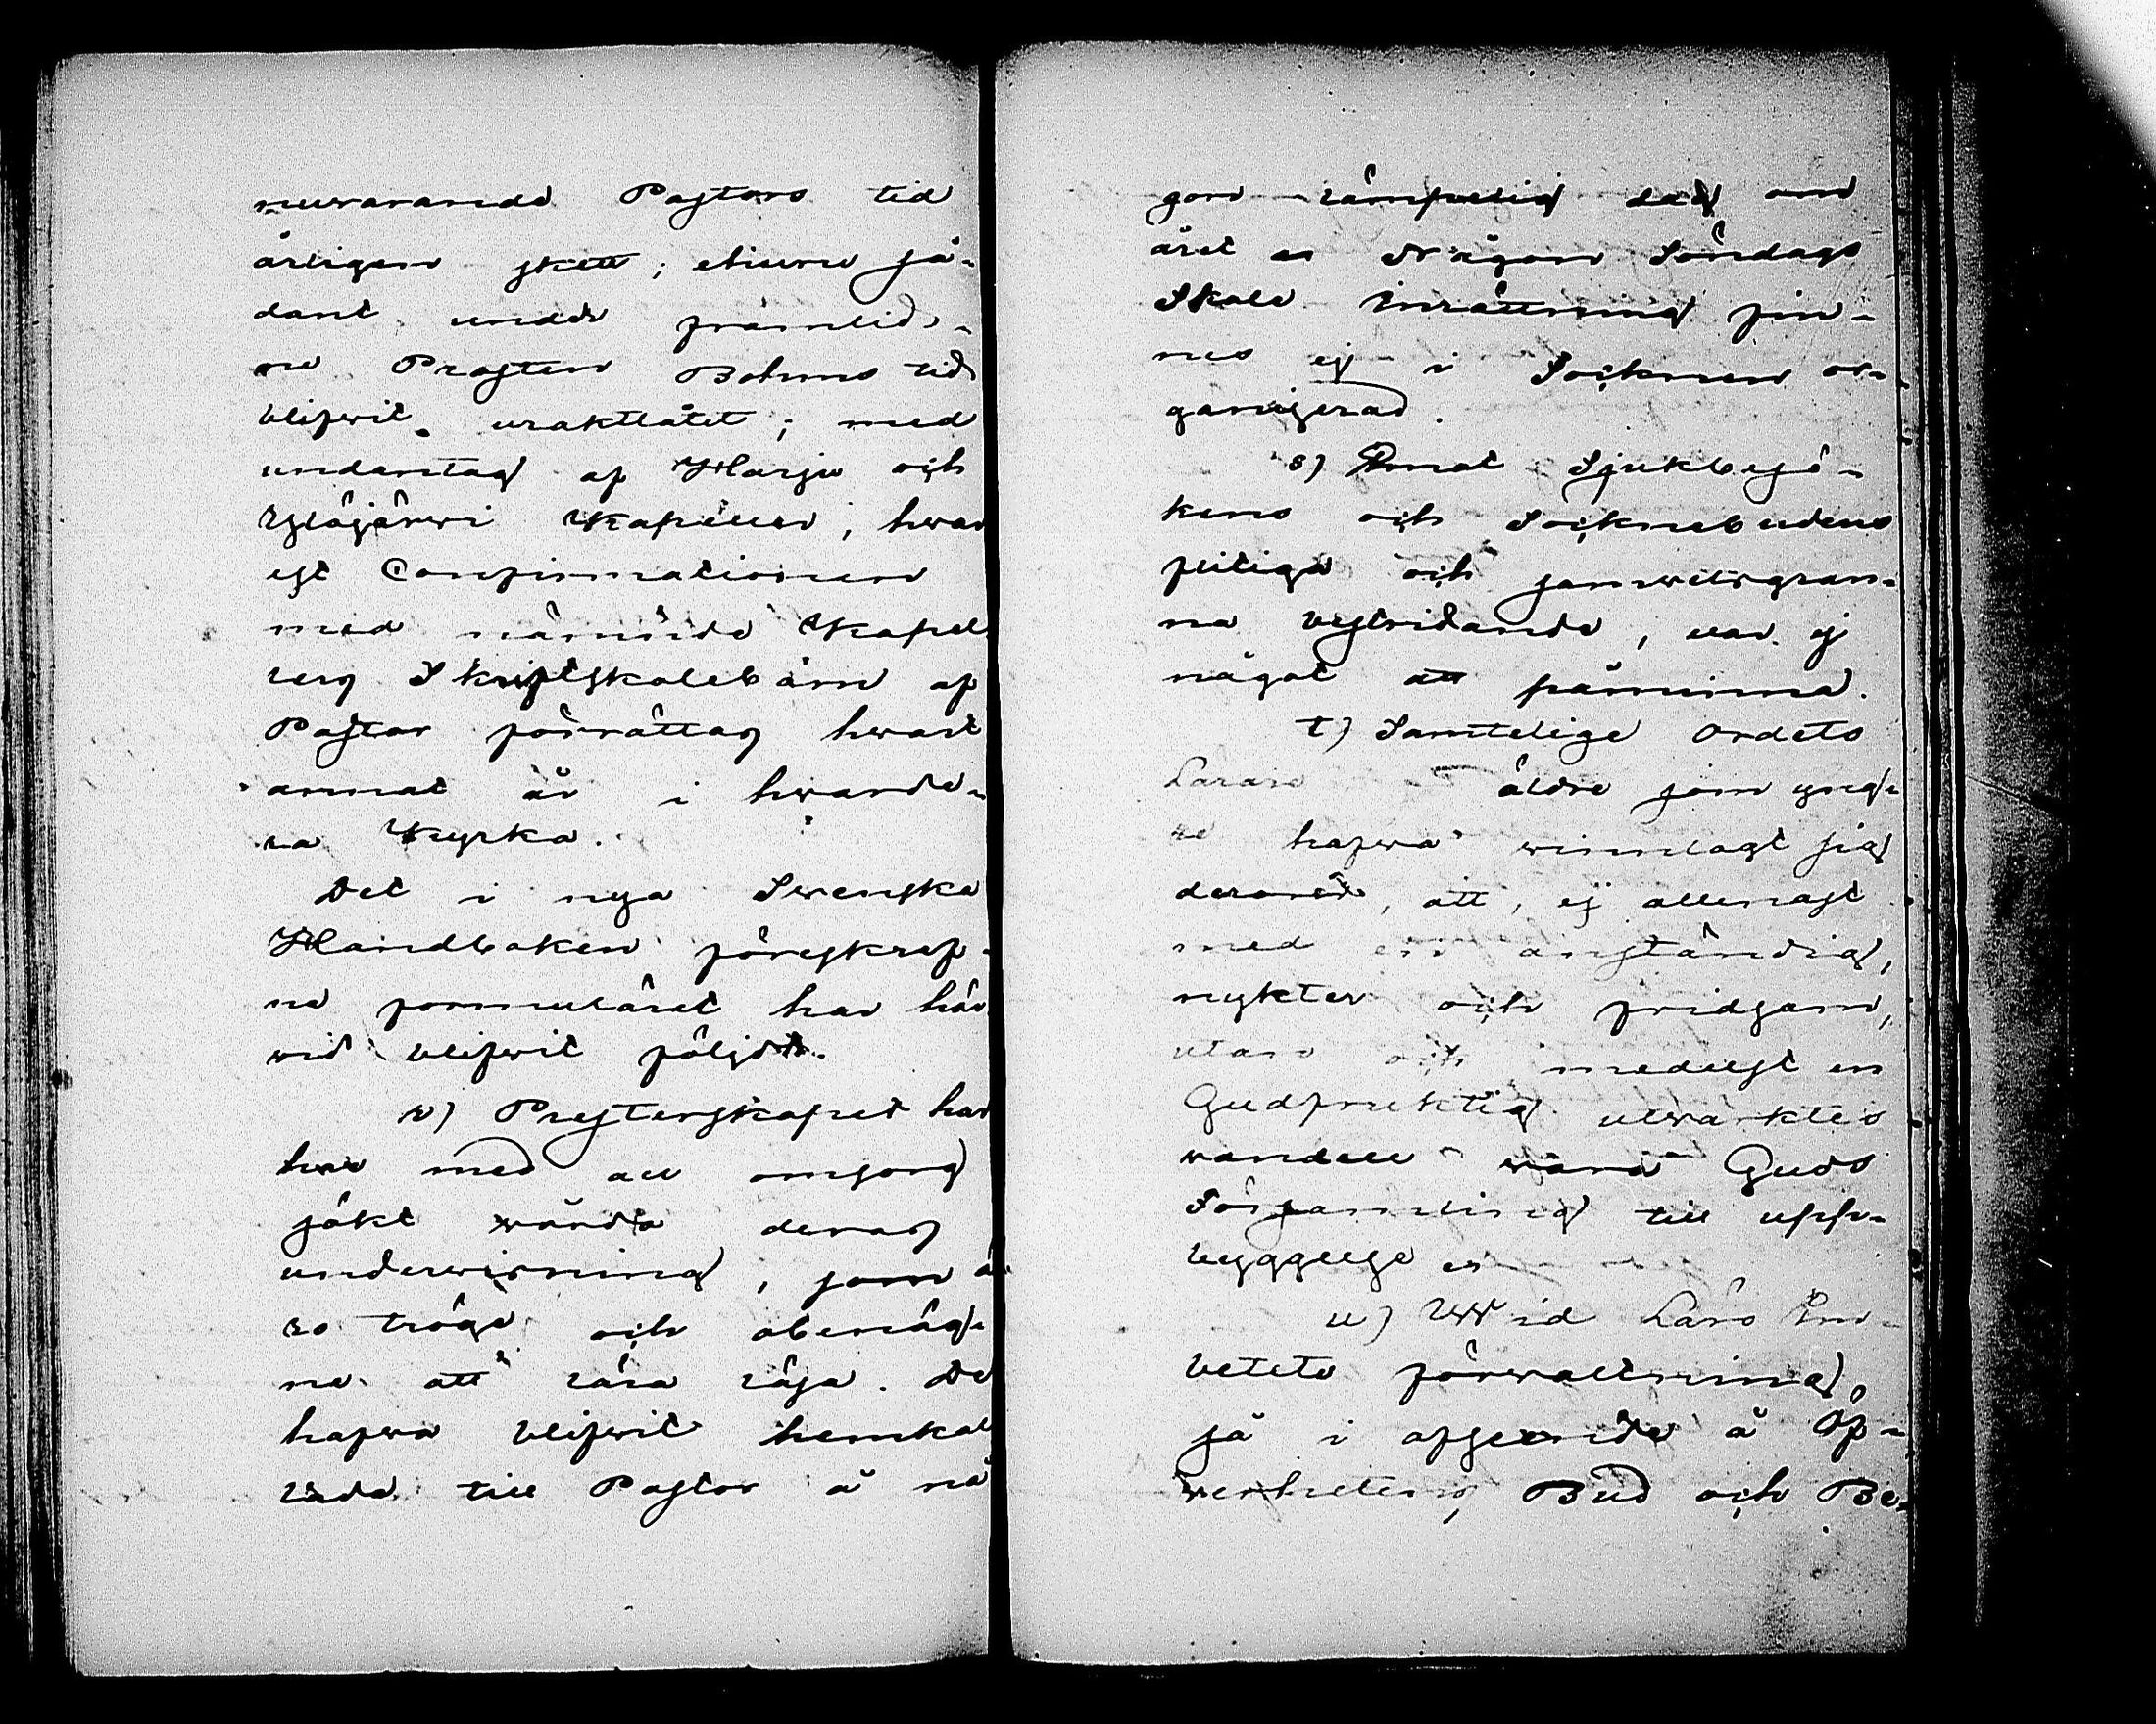 nuvarande Pastors tid
årligen skett; ehuru så-
dant under framlid-
ne Prosten Bohms tid
blifwit uraktlåtet; med
undantag af Harju och
Ylöjärwi Kapeller, hwar
est Confirmationen
med nämnde Kapel
lers Skriftskolebarn af
Pastor förrättas hwart
annat år i hwarde-
ra Kyrka.
Det i nya Swenska
Handboken föreskref-
ne formuläret har här
wid blifwit följdt.
r) Presterskapet har
hwe med all omsorg
sökt wårda deras
underwisning, som ä
ro tröge och obenäg-
ne att lära läsa. De
hafwa blifwit hemkal
lade till Pastor å nå
gon lämpelig dag om
året ex Någon Söndags
Skole inrättning fin-
nes ej i Socknen or-
ganiserad.
s) Emot Sjukbesö-
kens och Socknebudens
flitiga och samwetsgran-
na bestridande, war ej
något att påminna.
t) Samtelige Ordets
Lärare äldre som yng-
re hafwa winnlagt sig
derom, att, ej allenast
med en anständig,
nykter och fridsam,
utan och medelst en
Gudfruktig utwärtes
wandell wara Guds
Församling till upp-
byggelse ex
u) Wid Läro Em-
betets förwaltning,
så i afseende å Öf-
werhetens Bud och Be-